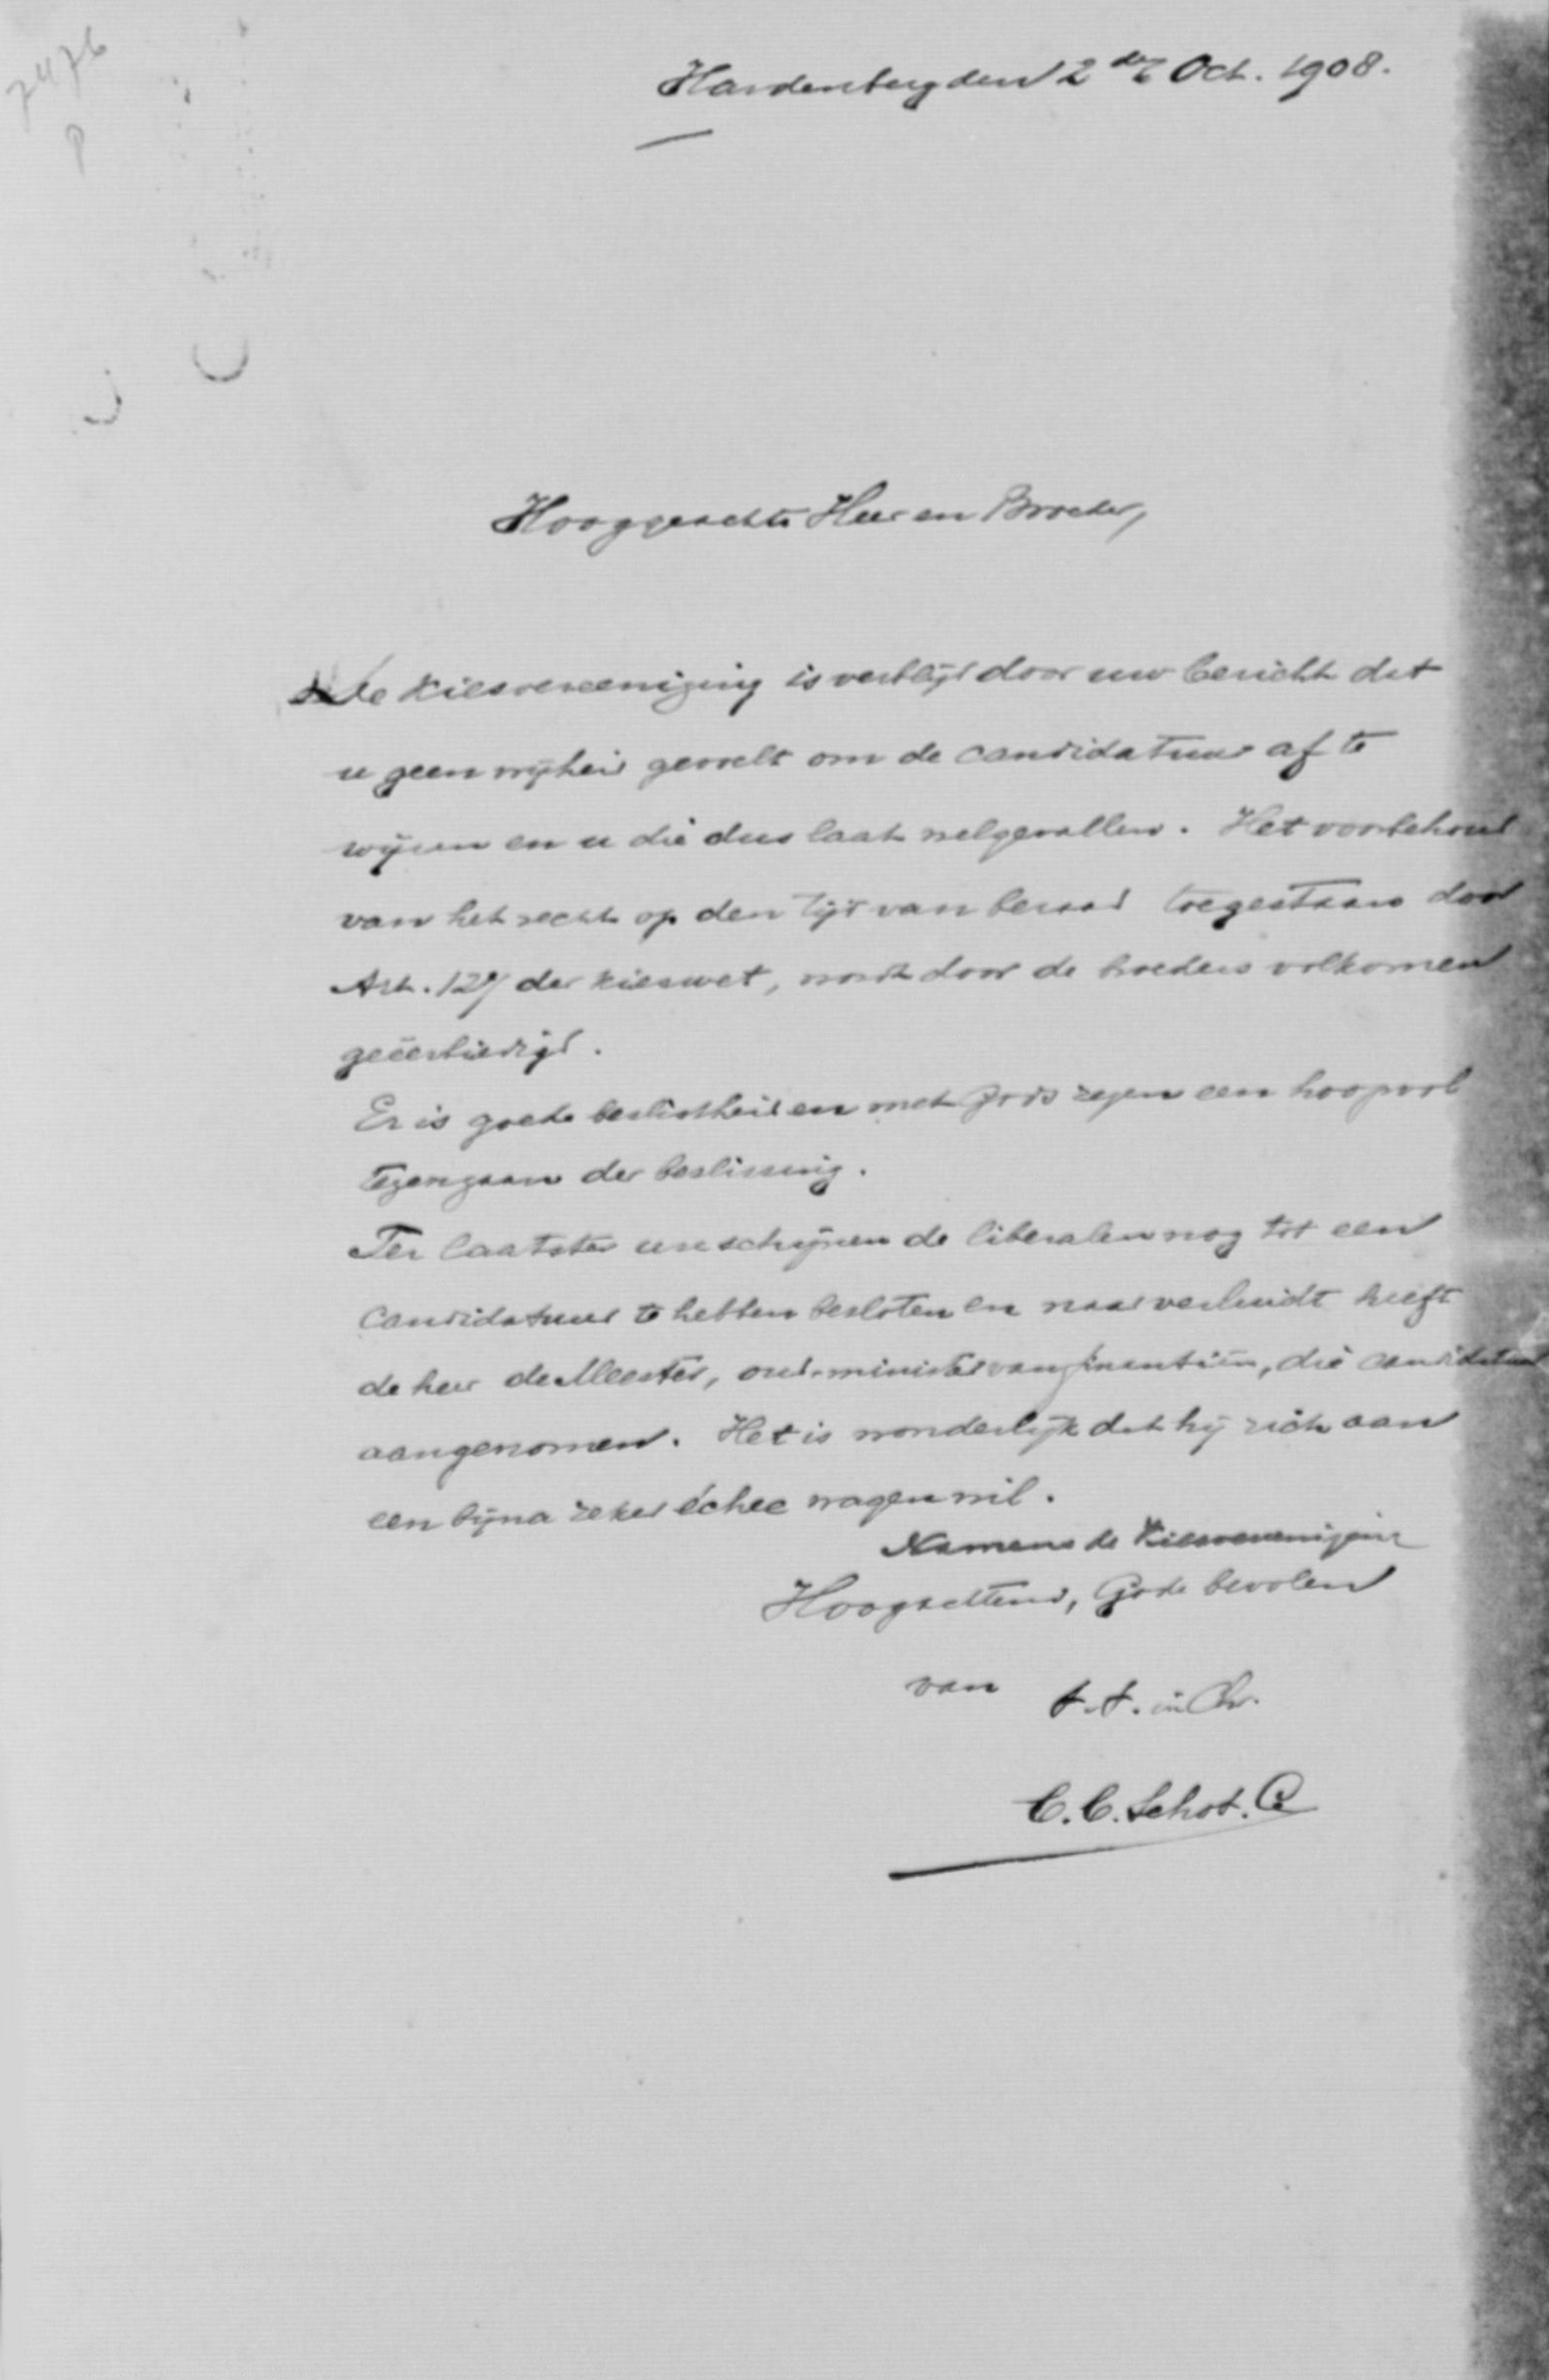 7476
P
Hardenberg den 2den Oct. 1908.
Hooggeachte Heer en Broeder,
de Kiesvereeniging is verblijd door uw bericht dat
u geen vrijheid gevoelt om de candidatuur af te
wijzen en u die dus laat welgevallen. Het voorbehoud
van het recht op den tijd van beraad toegestaan door
Art. 129 der kieswet, wordt door de broeders volkomen
geëerbiedigd.
Er is goede beslistheid en met Gods zegen een hoopvol
tegengaan der beslissing.
Ter laatster ure schijnen de liberalen nog tot een
candidatuur te hebben besloten en naar verluidt heeft
de heer de Meester, oud-minister van financiën, die candidatuur
aangenomen. Het is wonderlijk dat hij zich aan
een bijna zeker échec wagen wil.
Namens de Kiesvereeniging
Hoogachtend, Gode bevolen
van t.t. in Chr.
C. C. Schot. Cz